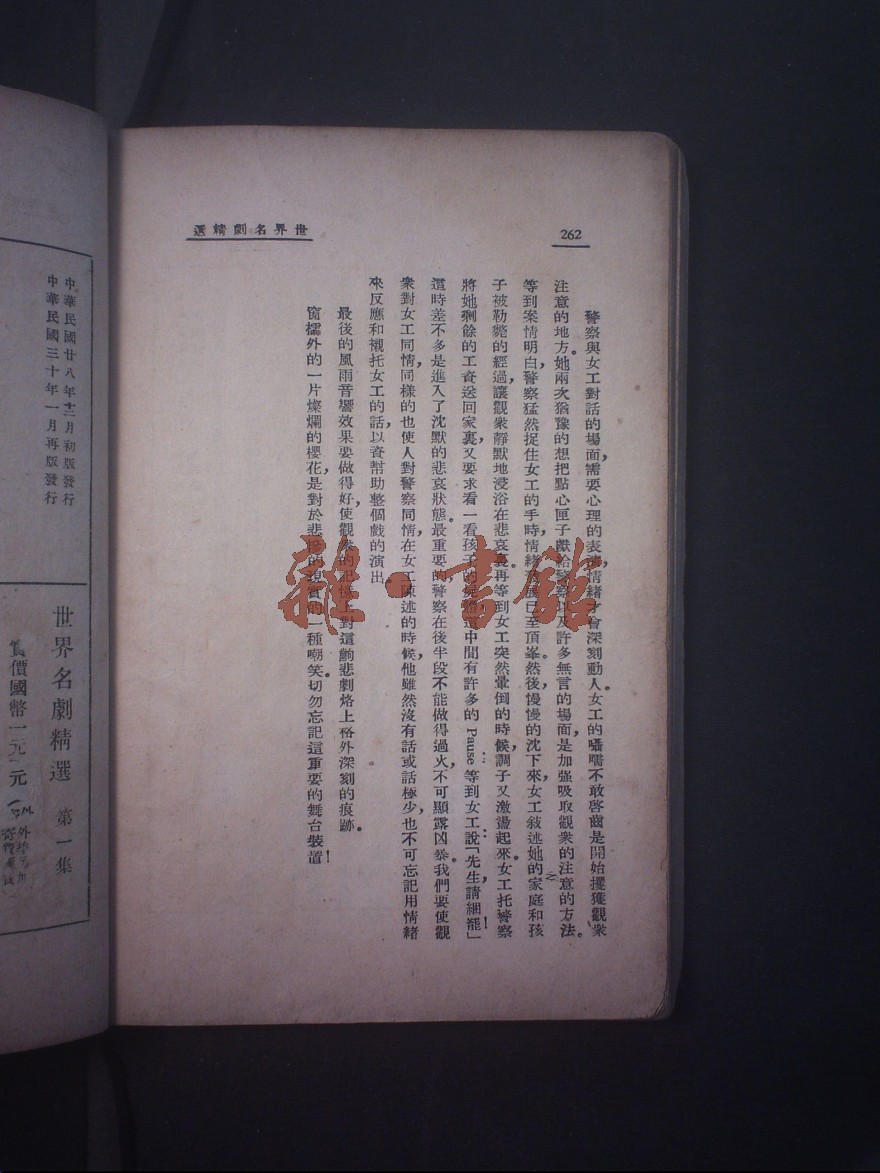 世界名劇精選
262
警察與女工對話的場面,需要心理的表演,情緒才會深刻動人。女工的囁嚅不敢啓齒是開始攫獲觀衆
注意的地方。她兩次猶豫的想把點心匣子獻給警察以及許多無言的場面,是加強吸取觀衆的注意的方法。
等到案情明白,警察猛然捉住女工的手時,情緒發展已至頂峯。然後,慢慢的沈下來,女工敍述她的家庭和孩
子被勒斃的經過,讓觀衆靜默地浸浴在悲哀裏。再等到女工突然暈倒的時候,調子又激盪起來。女工托警察
將她剩餘的工資送回家裏,又要求看一看孩子的屍體,這中間有許多的 Pause 等到女工說「先生,請細罷!」
這時差不多是進入了沈默的悲哀狀態。最重要的,警察在後半段不能做得過火,不可顯露凶暴。我們要使觀
衆對女工同情,同樣的也使人對警察同情,在女工陳述的時候,他雖然沒有話或話極少,也不可忘記用情緒
來反應和襯托女工的話,以資幫助整個戲的演出。
最後的風雨音響效果要做得好,使觀衆的記憶上對這齣悲劇烙上格外深刻的痕跡。
窗欞外的一片燦爛的櫻花,是對於悲慘的現實的一種嘲笑。切勿忘記這重要的舞台裝置!
中華民國廿八年十二月初版發行
中華民國三十年一月再版發行
世界名劇精選 第一集
實價國幣一元
雜·書館